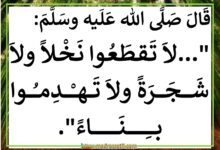 قَالَ صَلَّى الله عَلَيه وسَلَّمَ:
"...لاَ تَقطَعُوا نَخْلاً ولاَ
شَـجَـرَةً ولاَ تَـهْـدِمُـوا
بِـنَـاءً".